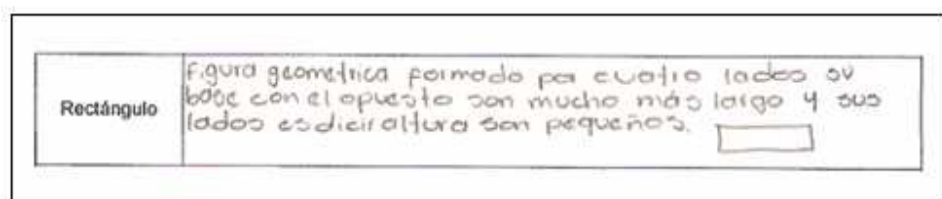 Rectángulo
Figura geometrica formado por cuatro lados su
base con el opuesto son mucho más largo y sus
lados es dicir altura son pequeños.